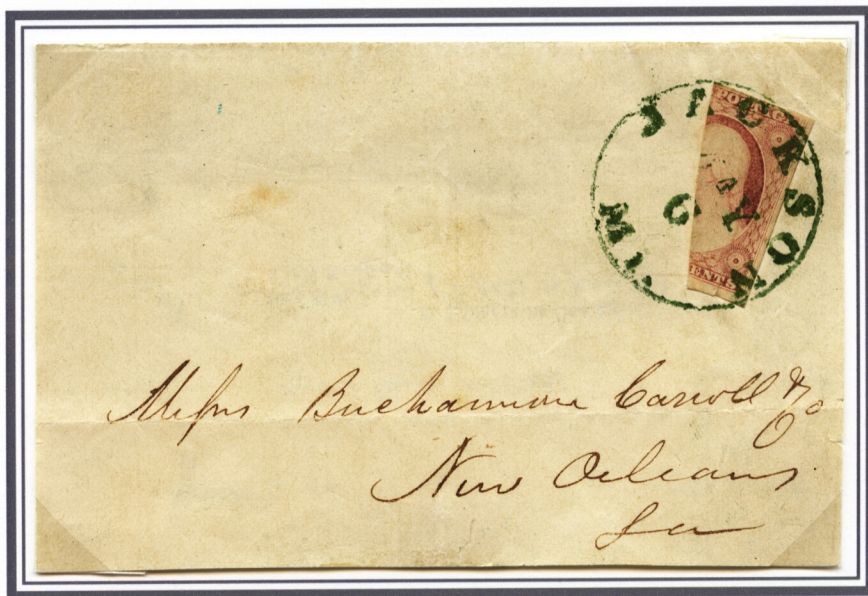 JACKSON
MAY
6
MI.
POSTAG
ENTS
Messrs Buchannan Carroll & Co
New Orleans
La